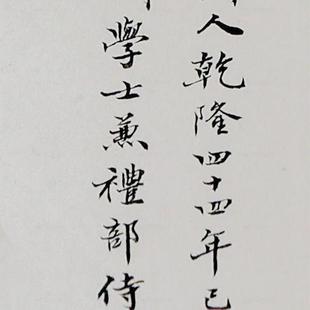 人乾隆四十四年已
學士兼禮部侍